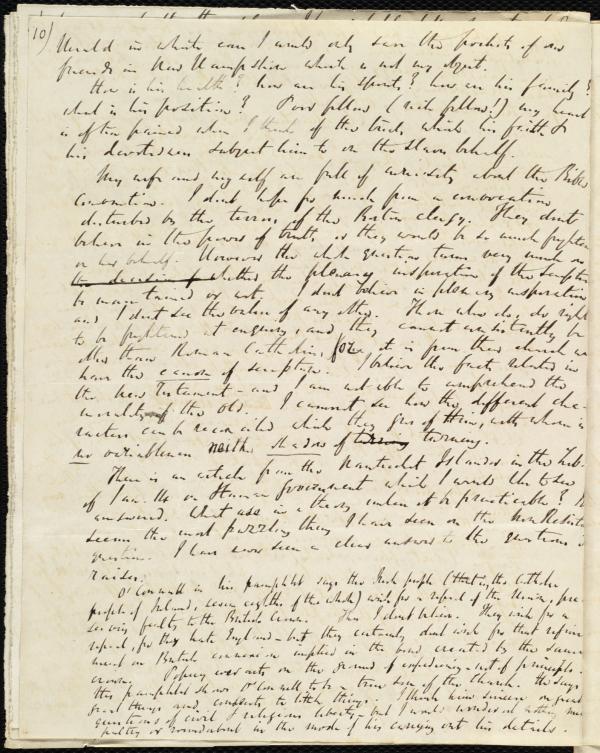 10)
Herald in which case I would only save the pockets of our
friends in New Hampshire which is not my object.
How is his health? how are his spirits? how are his family?
what is his position? Poor fellow (rich fellow!) my heart
is often pained when I think of the trials which his faith &
his devotedness subject him to on the slaves behalf.
My wife and myself are full of curiosity about the Bible
convention. I dont hope for much from a convocation
disturbed by the terrors of the Boston clergy. They dont
believe in the power of truth or they would be so much frighten
on its behalf. However the whole question turns very much on
the decision of whether the plenary inspiration of the scripture
be maintained or not. I dont believe in plenary inspiration
and I dont see the value of any other. Those who do, do right
to be frightened at enquiry, and they cannot consistently be
other than Roman Catholics, for it is from their church we
have the canon of scripture. I believe the facts related in
the New Testament - and I am not able to comprehend the
morality of the Old. I cannot see how the different cha-
racters can be reconciled which they give of Him, with whom is
no variableness neither shadow of turning.
There is an article from the Nantucket Islander in the Lib.
of Jan. on Human Government which I would like to see
answered. What use in a theory unless it be practicable? It
seems the most puzzling thing I have seen on the Non Resistance
question. I have never seen a clear answer to the questions it
raises.
O'Connell in his pamphlet says the Irish people (that is, the Catholic
people of Ireland, seven eighths of the whole) wish for a repeal of the Union, pre-
serving fealty to the British Crown. This I dont believe. They wish for a
repeal, for they hate England - but they certainly dont wish for that refine-
ment on British connexion implied in the bond created by the same
crown. Popery ever acts on the ground of expediency - not of principle.
This pamphlet shows O'Connell to be a true son of the Church. He says
great things and consents to little things. I think him sincere on great
questions of civil & religious liberty - but I would wonder at nothing
paltry or roundabout in the mode of his carrying out his details.